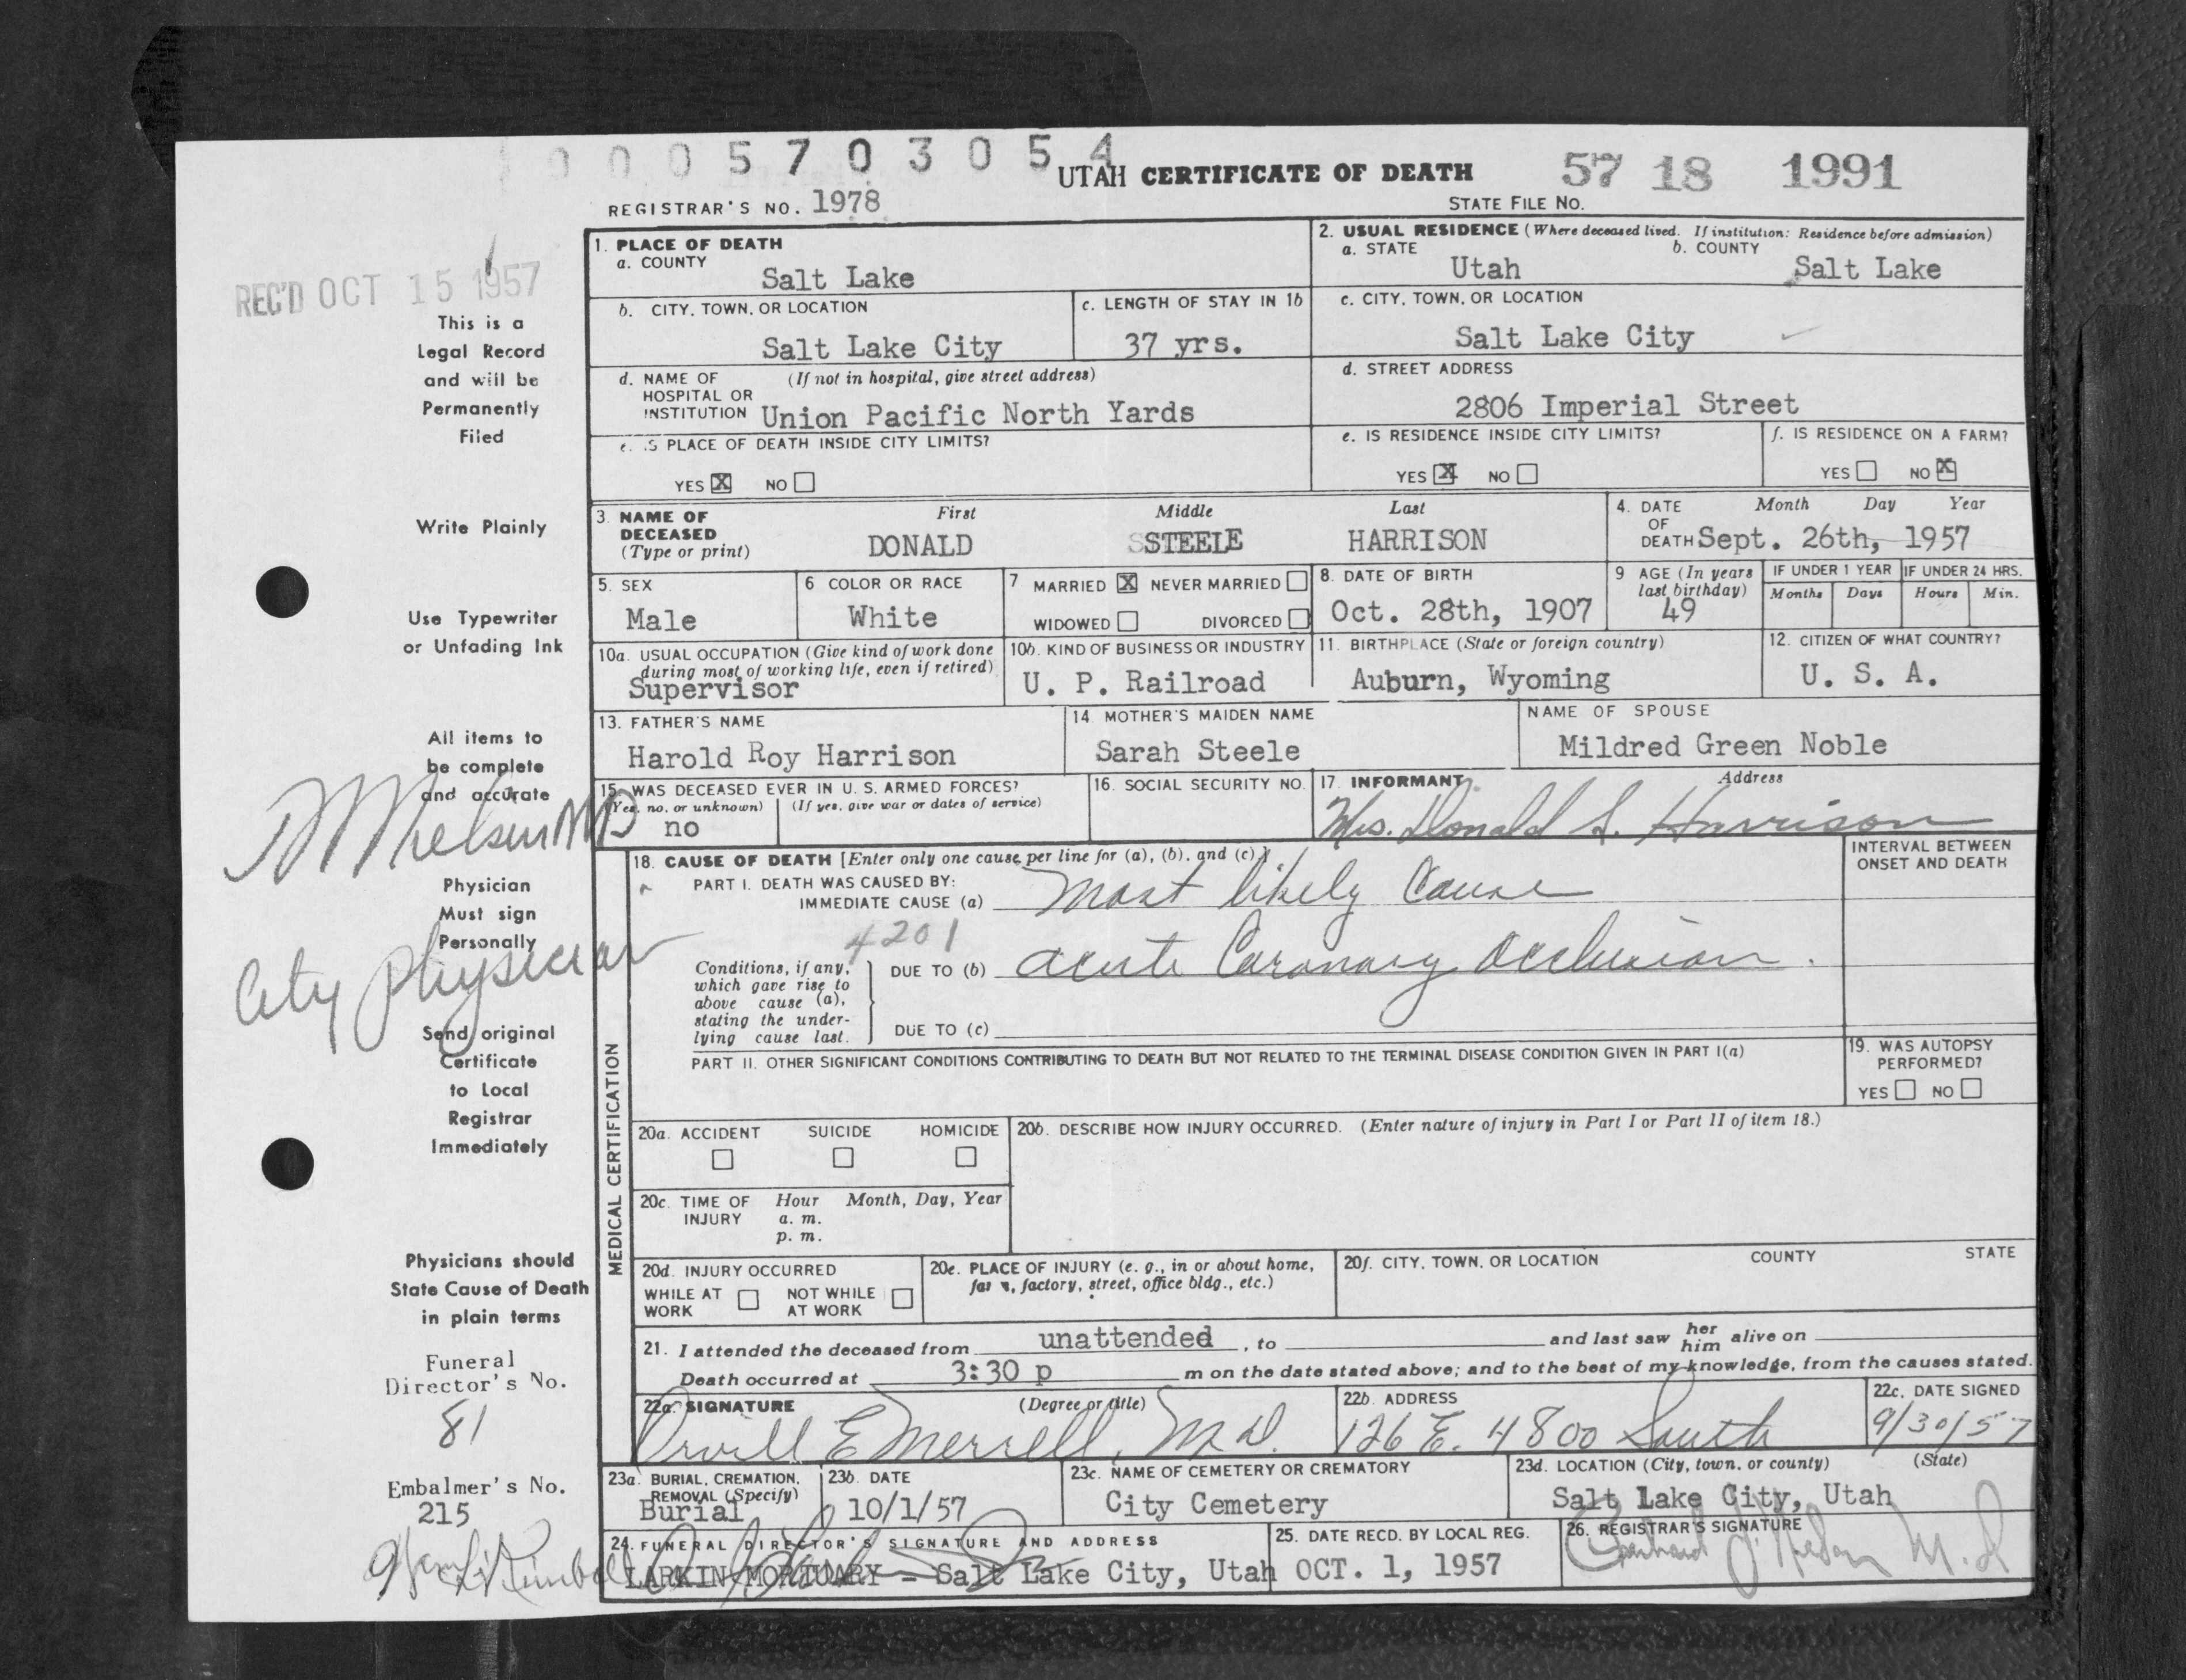 0 0 0 5 7 0 3 0 5 4
UTAH CERTIFICATE OF DEATH
57 18 1991
REGISTRAR'S NO. 1978
STATE FILE NO.
REC'D OCT 15 1957
This is a
Legal Record
and will be
Permanently
Filed
Write Plainly
Use Typewriter
or Unfading Ink
All items to
be complete
and accurate
Physician
Must sign
Personally
City Physician
Send original
Certificate
to Local
Registrar
Immediately
Physicians should
State Cause of Death
in plain terms
Funeral
Director's No.
81
Embalmer's No.
215
1. PLACE OF DEATH
a. COUNTY
Salt Lake
2. USUAL RESIDENCE (Where deceased lived. If institution: Residence before admission)
a. STATE
Utah
b. COUNTY
Salt Lake
b. CITY, TOWN, OR LOCATION
Salt Lake City
c. LENGTH OF STAY IN 1b
37 yrs.
c. CITY, TOWN, OR LOCATION
Salt Lake City
d. NAME OF (If not in hospital, give street address)
HOSPITAL OR
INSTITUTION Union Pacific North Yards
d. STREET ADDRESS
2806 Imperial Street
e. IS PLACE OF DEATH INSIDE CITY LIMITS?
YES X NO
e. IS RESIDENCE INSIDE CITY LIMITS?
YES X NO
f. IS RESIDENCE ON A FARM?
YES NO X
3. NAME OF
DECEASED
(Type or print)
First Middle Last
DONALD STEELE HARRISON
4. DATE Month Day Year
OF
DEATH Sept. 26th, 1957
5. SEX
Male
6 COLOR OR RACE
White
7 MARRIED X NEVER MARRIED
WIDOWED DIVORCED
8. DATE OF BIRTH
Oct. 28th, 1907
9 AGE (In years
last birthday)
49
IF UNDER 1 YEAR
Months Days
IF UNDER 24 HRS.
Hours Min.
10a. USUAL OCCUPATION (Give kind of work done
during most of working life, even if retired)
Supervisor
10b. KIND OF BUSINESS OR INDUSTRY
U. P. Railroad
11. BIRTHPLACE (State or foreign country)
Auburn, Wyoming
12. CITIZEN OF WHAT COUNTRY?
U. S. A.
13. FATHER'S NAME
Harold Roy Harrison
14. MOTHER'S MAIDEN NAME
Sarah Steele
NAME OF SPOUSE
Mildred Green Noble
15. WAS DECEASED EVER IN U. S. ARMED FORCES?
(Yes, no, or unknown) (If yes, give war or dates of service)
no
16. SOCIAL SECURITY NO.
17. INFORMANT Address
Mrs. Donald S. Harrison
MEDICAL CERTIFICATION
18. CAUSE OF DEATH [Enter only one cause per line for (a), (b), and (c).]
INTERVAL BETWEEN
ONSET AND DEATH
PART I. DEATH WAS CAUSED BY:
IMMEDIATE CAUSE (a) Most likely Cause
4201
Conditions, if any,
which gave rise to
above cause (a),
stating the under-
lying cause last.
DUE TO (b) acute Coronary Occlusion.
DUE TO (c)
PART II. OTHER SIGNIFICANT CONDITIONS CONTRIBUTING TO DEATH BUT NOT RELATED TO THE TERMINAL DISEASE CONDITION GIVEN IN PART I(a)
19. WAS AUTOPSY
PERFORMED?
YES NO
20a. ACCIDENT SUICIDE HOMICIDE
20b. DESCRIBE HOW INJURY OCCURRED. (Enter nature of injury in Part I or Part II of item 18.)
20c. TIME OF Hour Month, Day, Year
INJURY a. m.
p. m.
20d. INJURY OCCURRED
WHILE AT NOT WHILE
WORK AT WORK
20e. PLACE OF INJURY (e. g., in or about home,
farm, factory, street, office bldg., etc.)
20f. CITY, TOWN, OR LOCATION COUNTY STATE
21. I attended the deceased from unattended, to and last saw her him alive on
Death occurred at 3:30 p m on the date stated above; and to the best of my knowledge, from the causes stated.
22a. SIGNATURE (Degree or title)
Orvill E Merrell, M.D.
22b. ADDRESS
126 E. 4800 South
22c. DATE SIGNED
9/30/57
23a. BURIAL, CREMATION,
REMOVAL (Specify)
Burial
23b. DATE
10/1/57
23c. NAME OF CEMETERY OR CREMATORY
City Cemetery
23d. LOCATION (City, town, or county) (State)
Salt Lake City, Utah
24. FUNERAL DIRECTOR'S SIGNATURE AND ADDRESS
LARKIN MORTUARY - Salt Lake City, Utah
25. DATE RECD. BY LOCAL REG.
OCT. 1, 1957
26. REGISTRAR'S SIGNATURE